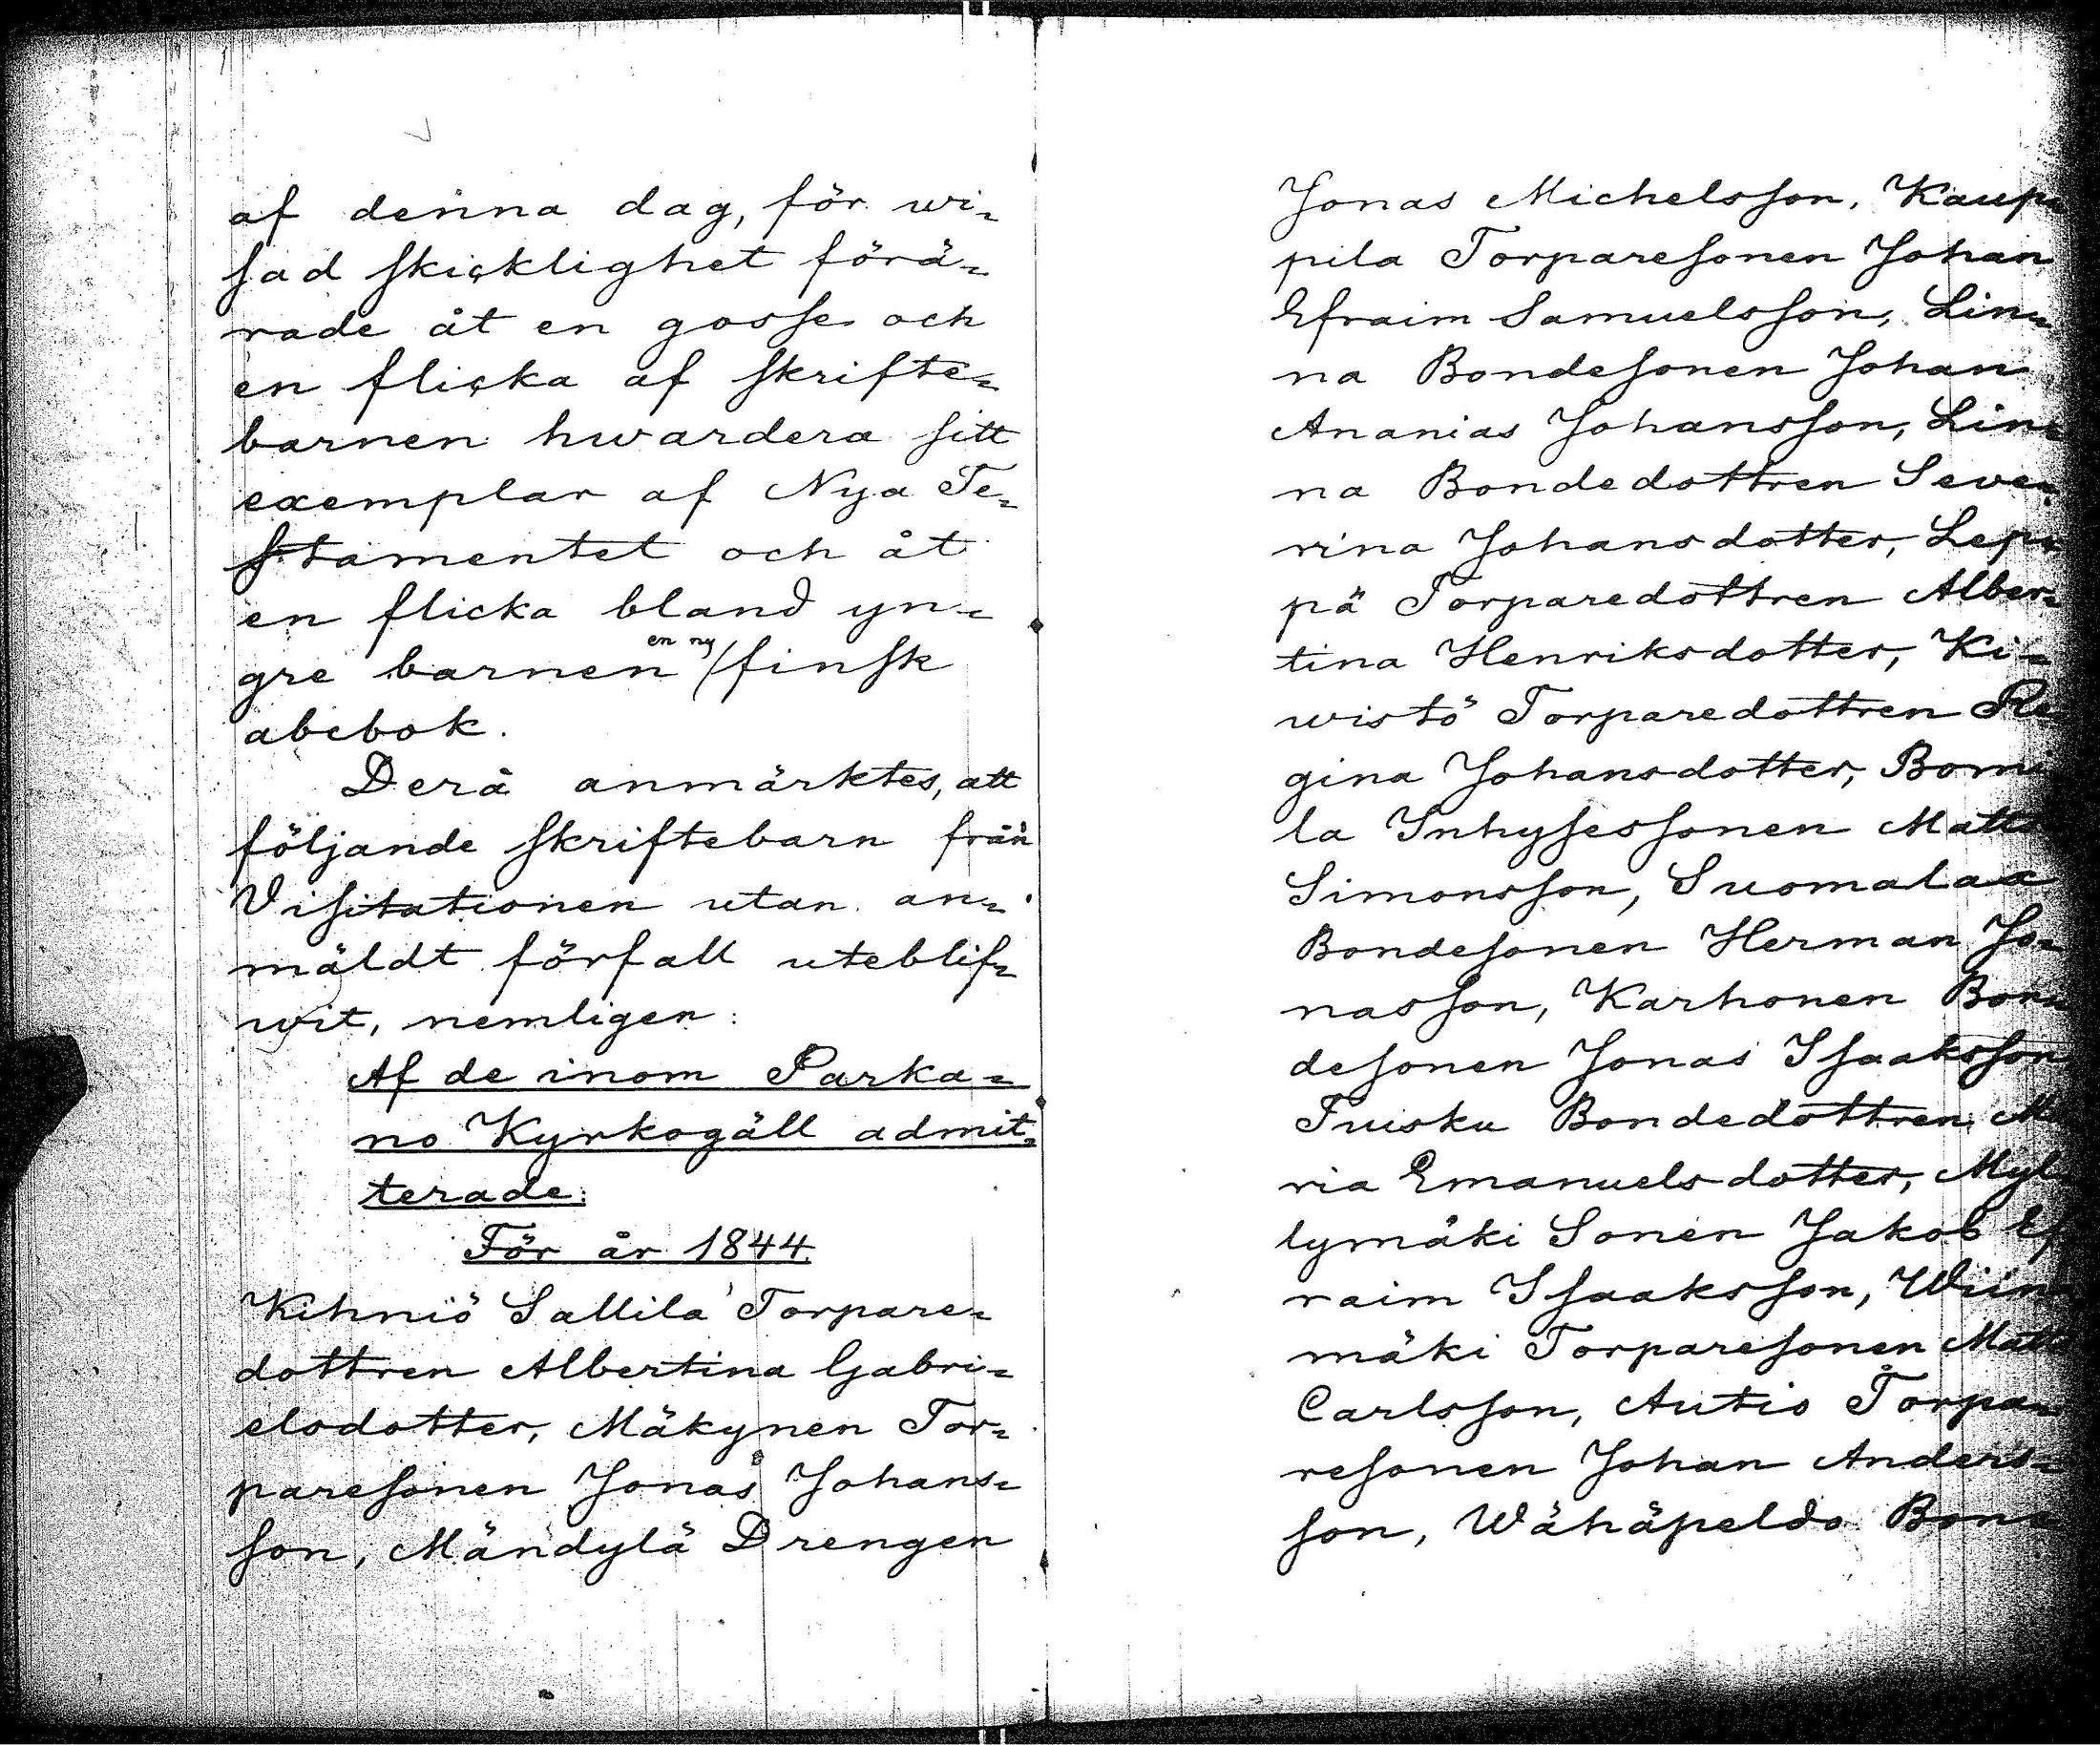 af denna dag, för wi=
sad skicklighet förä=
rade åt en gosse och
en flicka af skrifte=
barnen hwardera sitt
exemplar af Nya Te=
stamentet och åt
en flicka bland yn=
gre barnen en ny finsk
abcbok.
Derå anmärktes, att
följande skriftebarn från
Visitationen utan an=
mäldt förfall uteblif=
wit, nemligen:
Af de inom Parka=
no Kyrkogäll admit=
terade:
För år 1844.
Kihniö Sallila Torpare=
dottren Albertina Gabri=
elsdotter, Mäkynen Tor=
paresonen Jonas Johans=
son, Mändylä Drengen
Jonas Michelsson, Kaup=
pila Torparesonen Johan
Efraim Samuelsson, Lin=
na Bondesonen Johan
Ananias Johansson, Lin=
na Bondedottren Seve=
rina Johansdotter, Lep=
pä Torparedottren Alber=
tina Henriksdotter, Ki=
wistö Torparedottren Re
gina Johansdotter, Bomi
la Inhysessonen Matts
Simonsson, Suomalax
Bondesonen Herman Jo=
nasson, Karhonen Bon=
desonen Jonas Isaaksson
Tuisku Bondedottren Ma
ria Emanuelsdotter, Myl
lymäki Sonen Jakob Ef
raim Isaaksson, Wiin
mäki Torparesonen Matts
Carlsson, Autio Torpa=
resonen Johan Anders=
son, Wähäpeldo Bon=